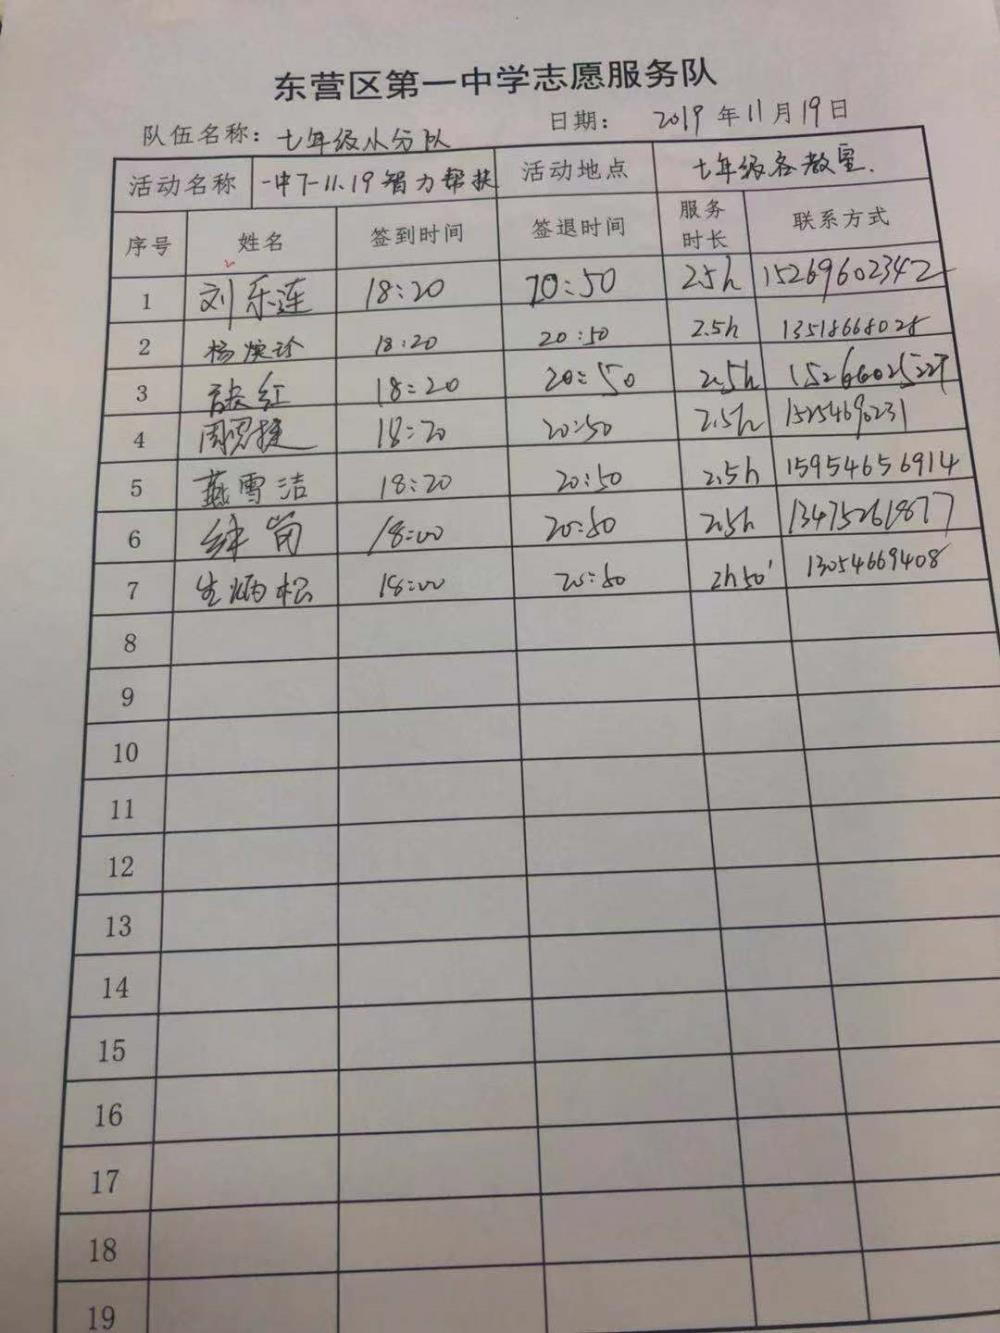 东营区第一中学志愿服务队
队伍名称：七年级小分队 日期： 2019年11月19日
活动名称 一中7-11.19智力帮扶 活动地点 七年级各教室.
序号 姓名 签到时间 签退时间 服务时长 联系方式
1 刘乐莲 18:20 20:50 2.5h 15269602342
2 杨焕珍 18:20 20:50 2.5h 13518668028
3 红 18:20 20:50 2.5h
4 周 捷 18:20 20:50 2.5h 15254690231
5 燕雪洁 18:20 20:50 2.5h 15954656914
6 18:00 20:50 2.5h 13475261877
7 生炳松 18:00 20:50 2h50' 13054669408
8
9
10
11
12
13
14
15
16
17
18
19